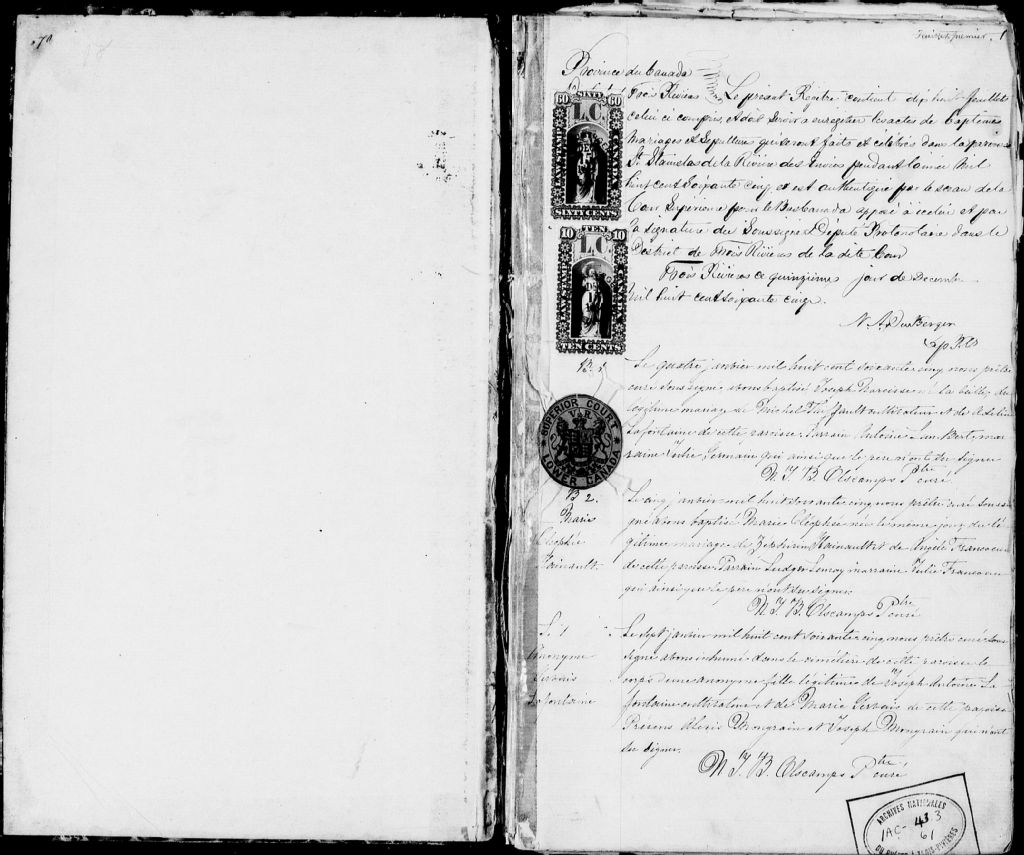 Feuillet premier. 1
Province du Canada
Trois Rivières Le présent Régitre contient dix huit feuillets
celui ci compris, et doit servir a enregistrer les actes de Baptêmes
Mariages et Sépultures qui seront faits et célébrés dans la paroisse
St. Stanislas de la Rivière des Envies pendant l'année Mil
huit cent Soixante cinq, et est authentiqué par le sceau de la
Cour Supérieure pour le Bas Canada apposé à icelui et par
la signature du Soussigné Député Protonotaire dans le
District de Trois Rivières de la dite Cour
Trois Rivières ce quinzième jour de Decembre
Mil huit cent soixante cinq.
60 SIXTY 60
L.C.
LAW STAMP
LOWER CANADA
SIXTY CENTS
10 TEN 10
L.C.
TEN CENTS
B. 1
Le quatre janvier mil huit cent soixante cinq nous prêtre
curé soussigné avons baptisé Joseph Narcisse né la veille du
légitime mariage de Michel cultivateur et de Adeline
Lafontaine de cette paroisse. Parrain Antoine mar
raine Germain qui ainsi que le pere n'ont su signer
N. J. B. Olscamps Ptre curé
SUPERIOR COURT
V R
LOWER CANADA
B 2.
Marie
Cléophie
Hainault
Le cinq janvier mil huit soixante cinq nous prêtre curé soussi
gné avons baptisé Marie Cléophie née le même jour du lé
gitime mariage de Zéphirin Hainault et de Angèle Francoeur
de cette paroisse. Parrain Ludger Lemay marraine Julie Francoeur
qui ainsi que le pere n'ont su signer.
N. J. B. Olscamps Ptre curé
S. 1
Anonyme
Lafontaine
Le sept janvier mil huit cent soixante cinq nous prêtre curé sous
signé avons inhumé dans le cimétière de cette paroisse le
corps d'une anonyme fille légitime de Joseph Antoine La
fontaine cultivateur et de Marie Gervais de cette paroisse
Présens Alexis Mongrain et Joseph Mongrain qui n'ont
su signer.
N. J. B. Olscamps Ptre curé
ARCHIVES NATIONALES
1AC- 43 3
61